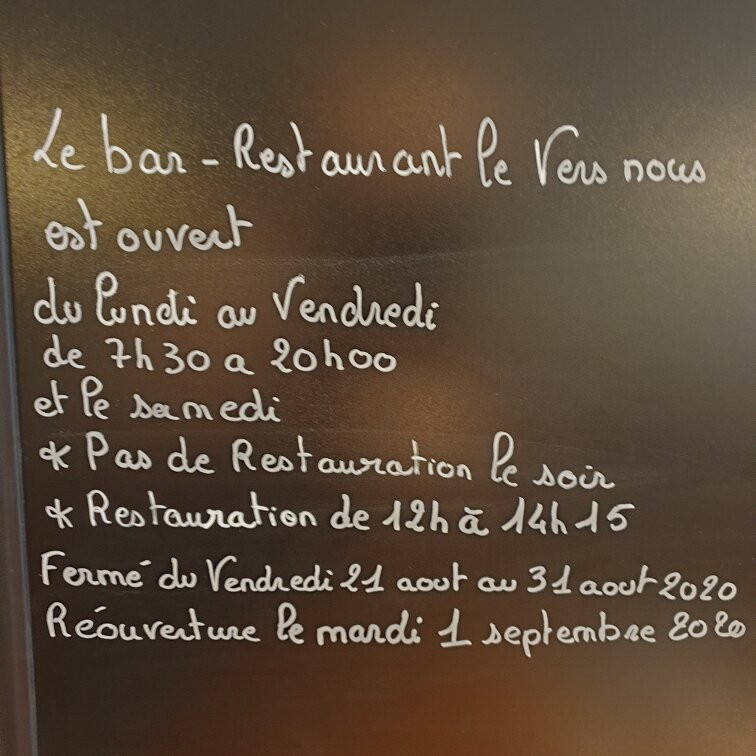 Le bar - Restaurant le Vers nous
est ouvert
du lundi au Vendredi
de 7h30 a 20h00
et le samedi
* Pas de Restauration le soir
* Restauration de 12h à 14h15
Fermé du Vendredi 21 aout au 31 aout 2020
Réouverture le mardi 1 septembre 2020